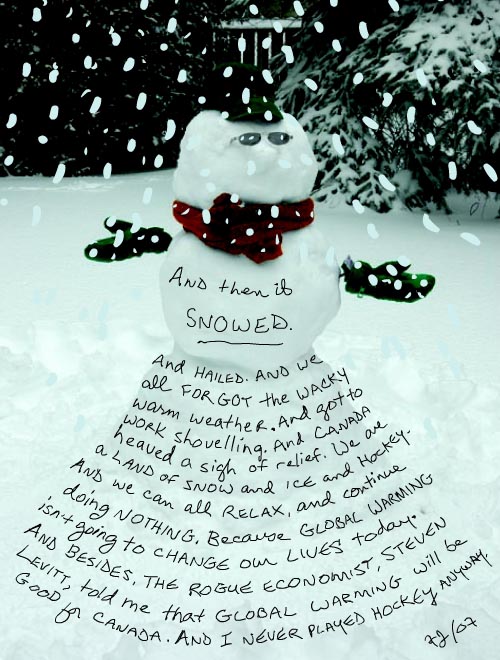 And then it
SNOWED.
And HAILED. And we
all FORGOT the WACKY
warm weather. And got to
work shovelling. And CANADA
heaved a sigh of relief. We are
a LAND OF SNOW and ICE and HOCKEY.
And we can all RELAX, and continue
doing NOTHING. Because GLOBAL WARMING
isn't going to CHANGE our LIVES today.
AND BESIDES, THE ROGUE ECONOMIST, STEVEN
LEVITT, told me that GLOBAL WARMING will be
GOOD for CANADA. AND I NEVER PLAYED HOCKEY ANYWAY.
/07